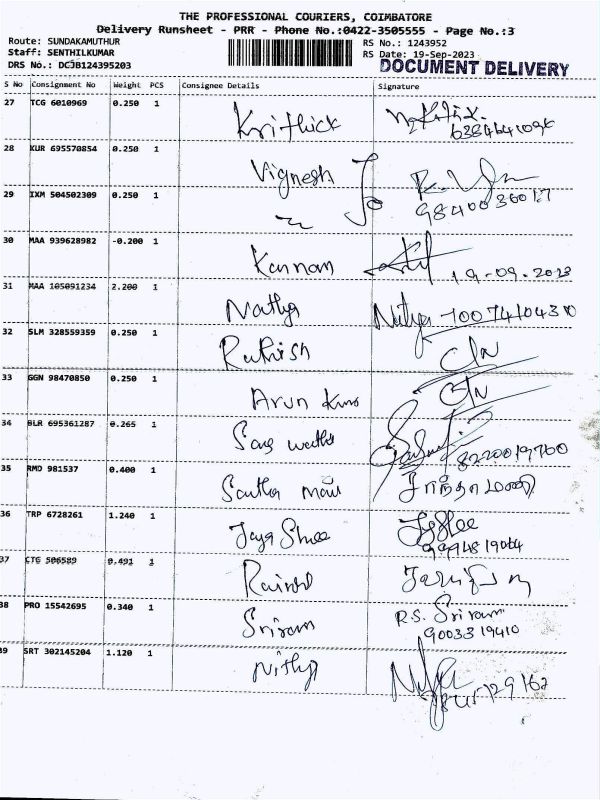 THE PROFESSIONAL COURIERS, COIMBATORE
Delivery Runsheet - PRR - Phone No.:0422-3505555 - Page No.:3
Route: SUNDAKAMUTHUR RS No.: 1243952
Staff: SENTHILKUMAR RS Date: 19-Sep-2023
DRS No.: DCJB124395203 DOCUMENT DELIVERY
S No Consignment No Weight PCS Consignee Details Signature
27 TCG 6010969 0.250 1 Krithick
28 KUR 695570854 0.250 1 Vignesh
29 IXM 504502309 0.250 1
30 MAA 939628982 -0.200 1 Kannan 19-09-2023
31 MAA 105091234 2.200 1 Nathya
32 SLM 328559359 0.250 1
33 GGN 98470850 0.250 1 Arun
34 BLR 695361287 0.265 1 8220019700
35 RMD 981537 0.400 1 சாந்தாமணி
36 TRP 6728261 1.240 1 Jaya Shree
37 CTG 506589 0.491 1
38 PRO 15542695 0.340 1 Sriram R.S. Sriram
9003319410
39 SRT 302145204 1.120 1 Nithya